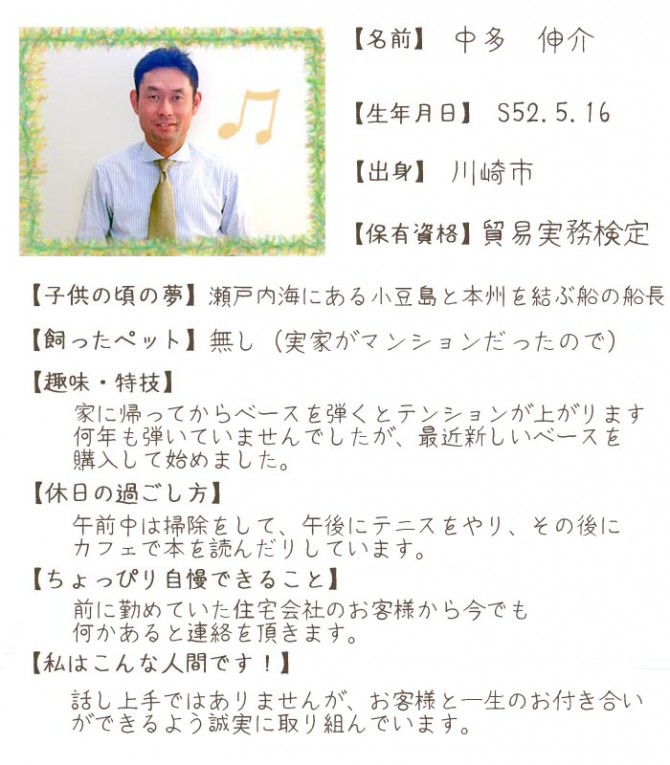 【名前】 中多 伸介
【生年月日】 S52.5.16
【出身】 川崎市
【保有資格】貿易実務検定
【子供の頃の夢】瀬戸内海にある小豆島と本州を結ぶ船の船長
【飼ったペット】無し（実家がマンションだったので）
【趣味・特技】
家に帰ってからベースを弾くとテンションが上がります
何年も弾いていませんでしたが、最近新しいベースを
購入して始めました。
【休日の過ごし方】
午前中は掃除をして、午後にテニスをやり、その後に
カフェで本を読んだりしています。
【ちょっぴり自慢できること】
前に勤めていた住宅会社のお客様から今でも
何かあると連絡を頂きます。
【私はこんな人間です！】
話し上手ではありませんが、お客様と一生のお付き合い
ができるよう誠実に取り組んでいます。